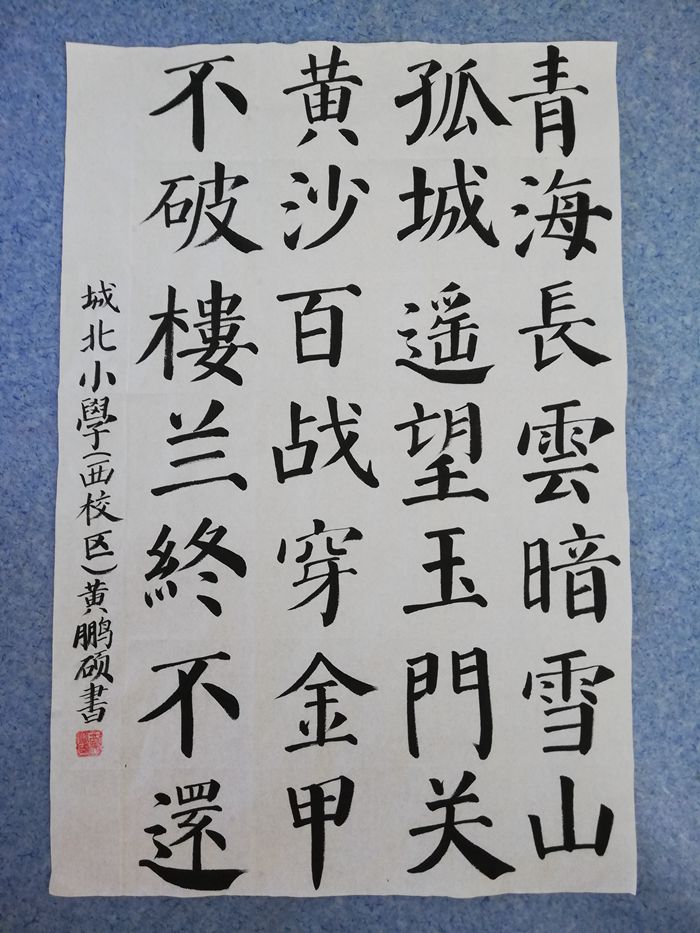 青海長雲暗雪山
孤城遥望玉門关
黄沙百战穿金甲
不破樓兰終不還
城北小學(西校区)黄鹏硕書